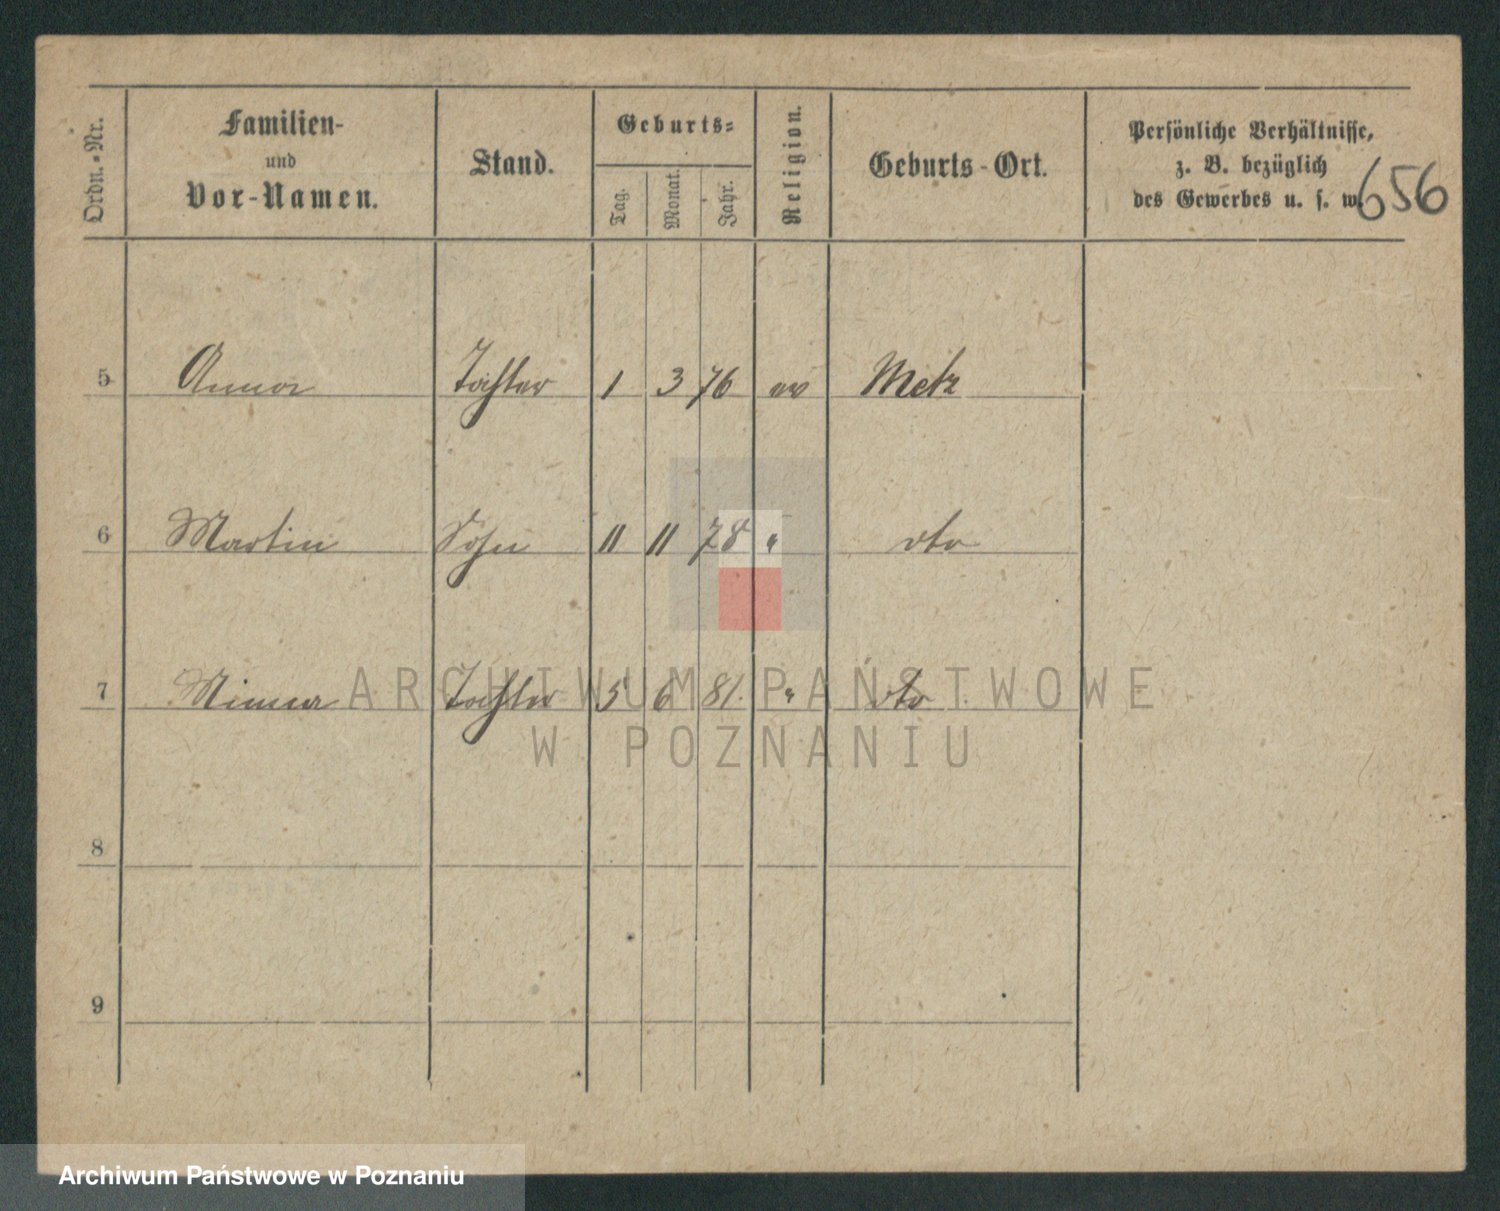 Ordn.-Nr.
Familien-
und
Vor-Namen.
Stand.
Geburts-
Tag.
Monat.
Jahr.
Religion.
Geburts-Ort.
Persönliche Verhältnisse,
z. B. bezüglich
des Gewerbes u. s. w.
656
5 Anna Tochter 1 3 76 ev Metz
6 Martin Sohn 11 11 78 " dto
7 Minna Tochter 5 6 81. " dto
8
9
ARCHIWUM PAŃSTWOWE
W POZNANIU
Archiwum Państwowe w Poznaniu